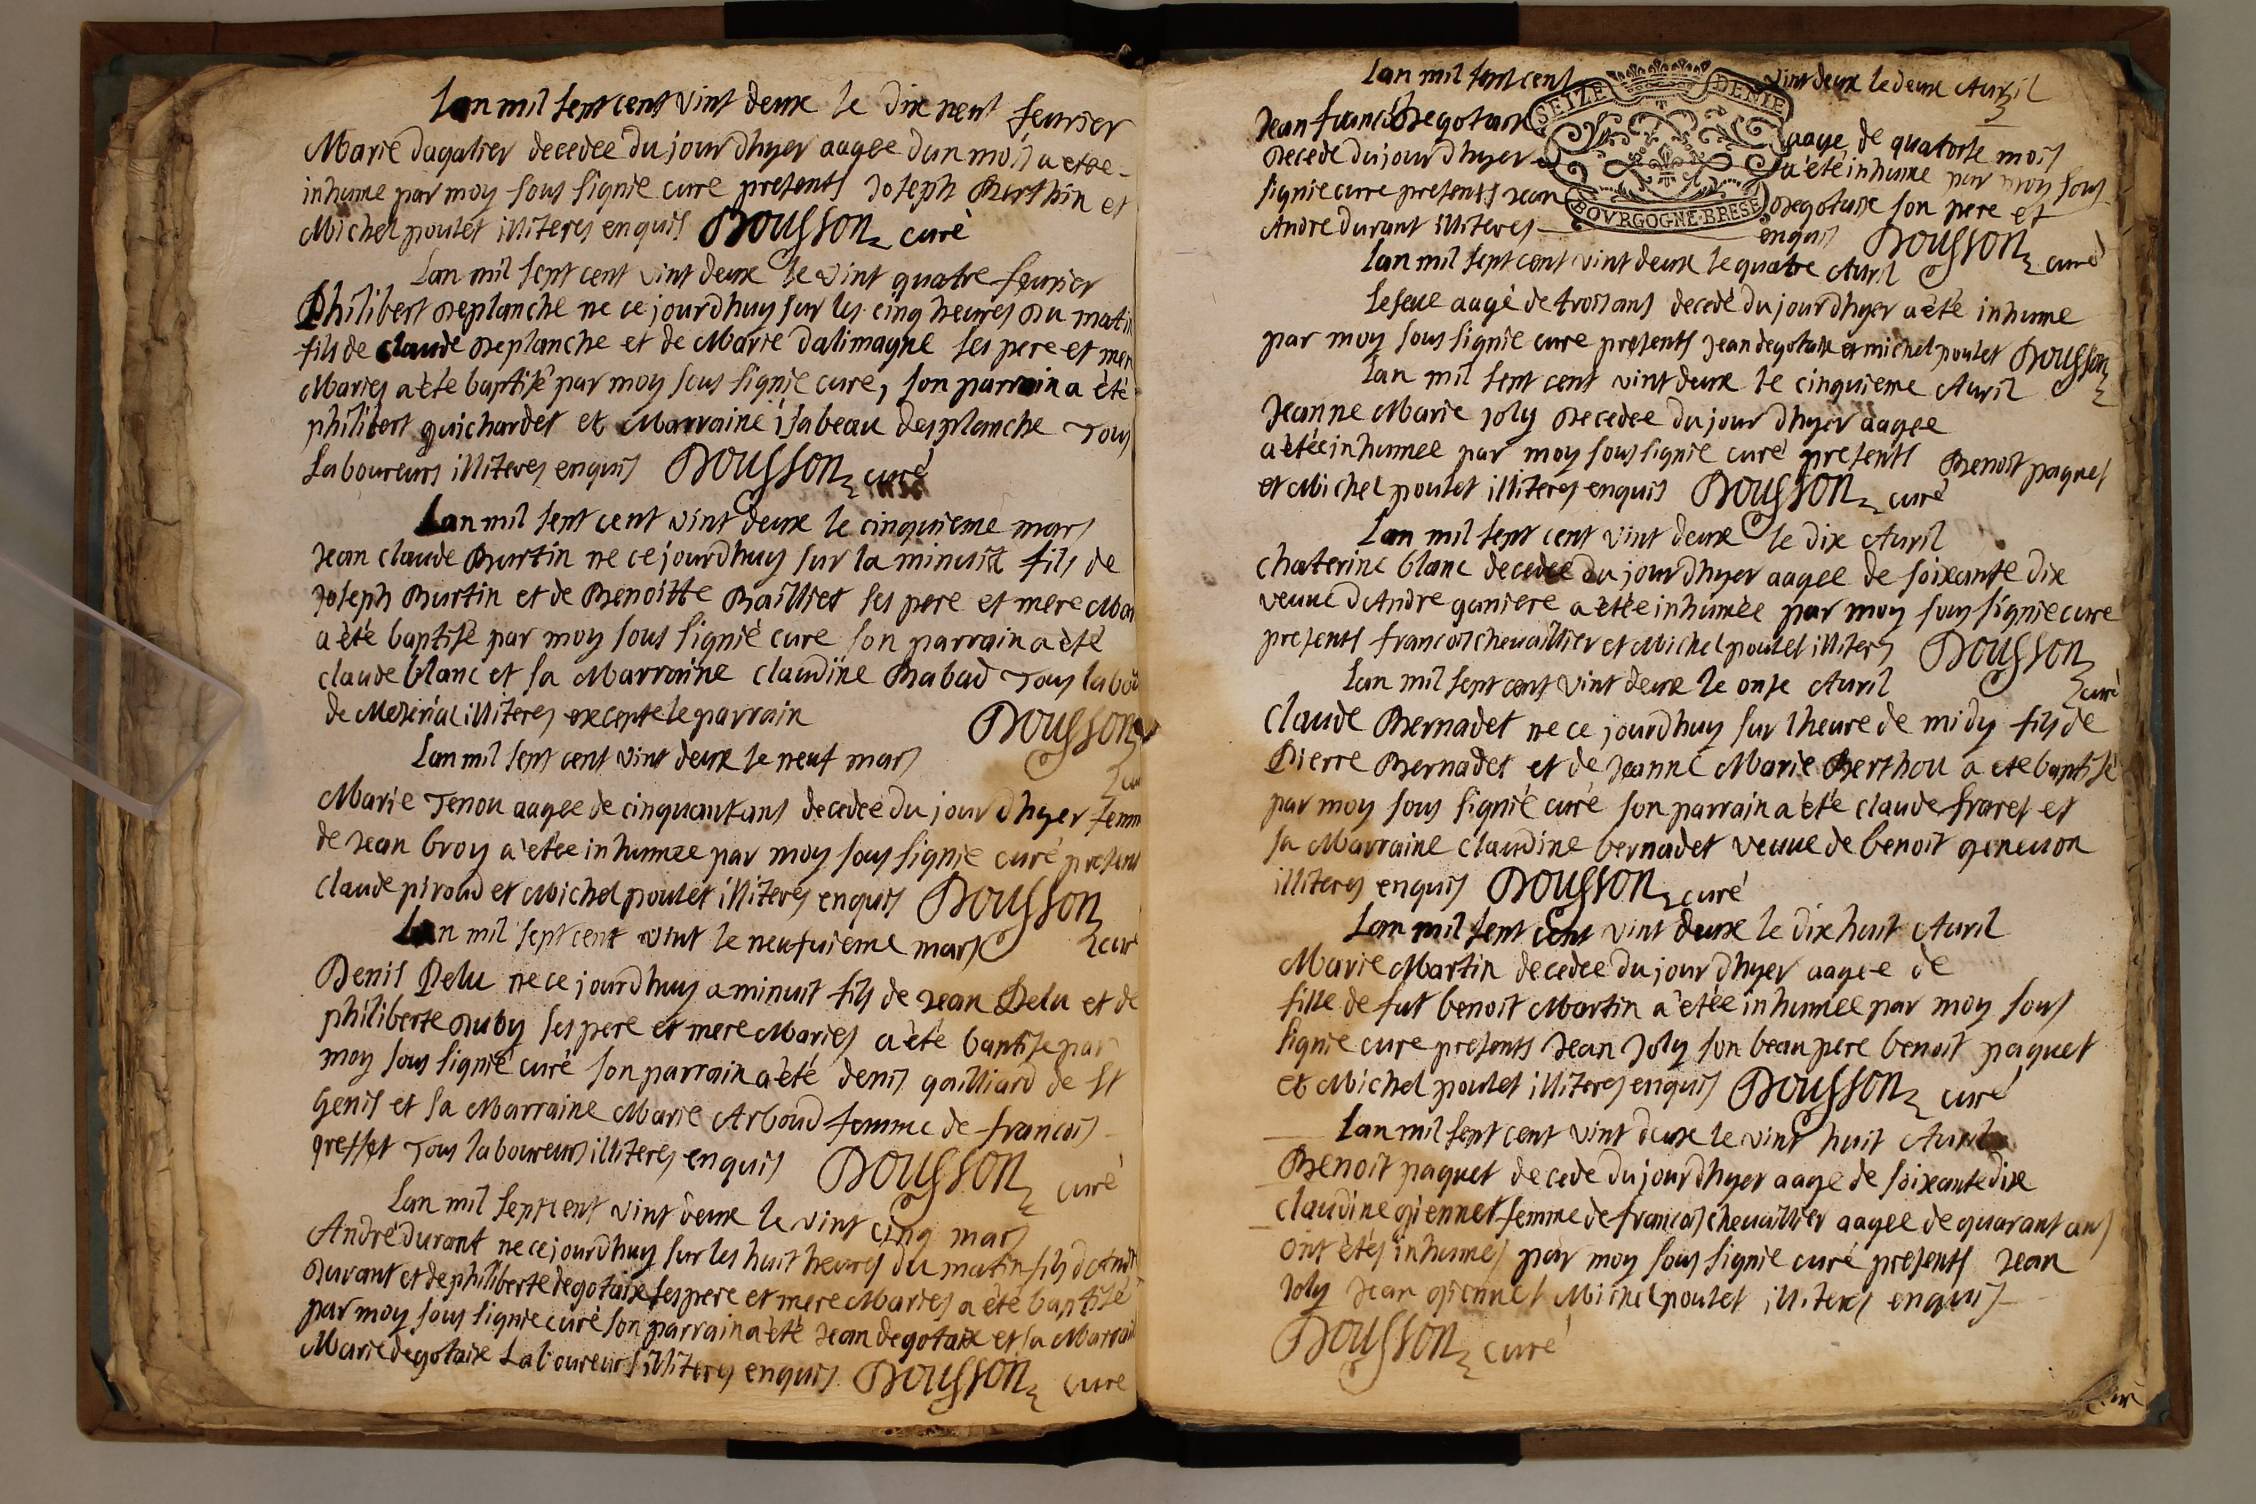 Lan mil sept cent vint deux le dix neuf feurier
Marie dagalier decedée du jour dhyer aagee dun mois a etee
inhume par moy sous signie cure presents Joseph Berthin et
Michel poulet illiteres enquis Dousson curé
Lan mil sept cent vint deux le vint quatre feurier
Philibert Deplanche ne ce jourdhuy sur les cinq heures Du matin
fils de claude Deplanche et de Marie dalimagne ses pere et mere
Maries a été baptisé par moy sous signie curé, son parrain a été
philibert guichardet et Marraine isabeau desplanche Tous
Laboureurs illiteres enquis Dousson curé
Lan mil sept cent vint deux le cinquieme mars
Jean claude Burtin ne ce jourdhuy sur la minuit fils de
Joseph Burtin et de Benoitte Bailliet ses pere et mere Ma
a été baptisé par moy sous signié curé son parrain a été
claude blanc et sa Marraine claudine Rabad Tous labou
de Mezerial illiteres excepte le parrain Dousson
Lan mil sept cent vint deux le neuf mars cu
Marie Tenou aagee de cinquant ans decedee du jour dhyer femm
de Jean broy a étée inhumee par moy sous signie curé present
claude piroud et Michel poulet illiteres enquis Dousson
Lan mil sept cent vint le neufuieme mars curé
Denis Pelu ne ce jourdhuy a minuit fils de Jean Pelu et de
philiberte Duby ses pere et mere Maries a été baptise par
moy sous signié curé son parrain a été denis gailliard de St
Genis et sa Marraine Marie Arboud femme de francois
gresset Tous laboureurs illiteres enquis Dousson curé
Lan mil sept cent vint deux le vint cinq mars
André durant ne ce jourdhuy sur les huit heures du matin fils dAndr
Durant et de philiberte degotaix ses pere et mere Maries a été baptisé
par moy sous signie curé son parrain a été Jean degotaix et sa Marrai
Marie degotaix Laboureurs illiteres enquis Dousson curé
Lan mil sept cent vint deux le deux Auril
SEIZE DENIE
Jean francois Degotaix aagé de quatorse mois
Decede du jour dhyer a été inhume par moy sous
signie cure presents Jean Degotaix son pere et
BOVRGOGNE·BRESE
André durant illiteres enquis Dousson curé
Lan mil sept cent vint deux le quatre Auril
Leseue aagé de trois ans decedé du jour dhyer a été inhume
par moy sous signie cure presents Jean degotaix et michel poulet Dousson
Lan mil sept cent vint deux le cinquieme Auril
Jeanne Marie Joly Decedee du jour dhyer aagee
a étée inhumee par moy sous signie curé presents Benoit paquet
et Michel poulet illiteres enquis Dousson curé
Lan mil sept cent vint deux le dix Auril
chaterine blanc decedee du jour dhyer aagee de soixante dix
veuue dAndre ganiere a étée inhumée par moy sous signie cure
presents francois cheuaillier et Michel poulet illiters Dousson
Lan mil sept cent vint deux le onse Auril curé
Claude Bernadet ne ce jourdhuy sur lheure de midy fils de
Pierre Bernadet et de Jeanne Marie Berthou a ete baptisé
par moy sous signié curé son parrain a été claude fraret et
sa Marraine claudine bernadet veuue de benoit geneuon
illiteres enquis Dousson curé
Lan mil sept cent vint deux le dix huit Auril
Marie Martin decedee du jour dhyer aagee de
fille de fut benoit Martin a étée inhumee par moy sous
signie cure presents Jean Joly son beau pere benoit paquet
et Michel poulet illiteres enquis Dousson curé
Lan mil sept cent vint deux le vint huit Auril
Benoit paquet decede du jour dhyer aage de soixante dix
claudine giennet femme de francois cheuaillier aagee de quarant ans
ont étés inhumes par moy sous signie curé presents Jean
Joly Jean giennet Michel poulet illiteres enquis
Dousson curé